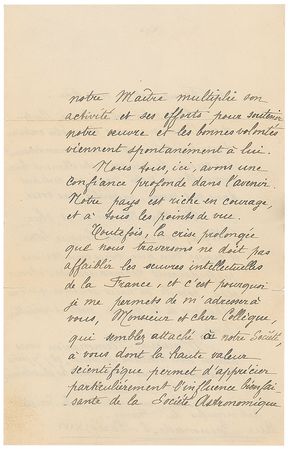 notre Maître multiplie son
activité et ses efforts pour soutenir
notre œuvre et les bonnes volontés
viennent spontanément à lui.
Nous tous, ici, avons une
confiance profonde dans l'avenir.
Notre pays est riche en courage,
et à tous les points de vue.
Toutefois, la crise prolongée
que nous traversons ne doit pas
affaiblir les œuvres intellectuelles
de la France, et c'est pourquoi
je me permets de m'adresser à
vous, Monsieur et cher Collègue,
qui semblez attaché à notre Société,
à vous dont la haute valeur
scientifique permet d'apprécier
particulièrement l'influence bienfai
sante de la Société Astronomique